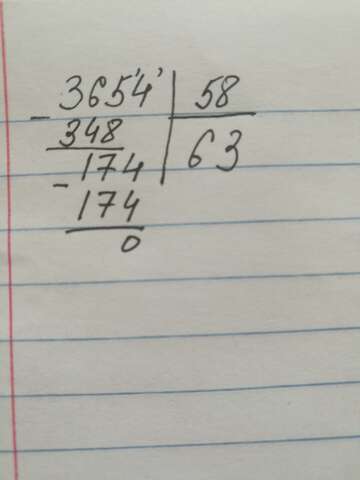 3654 58
348 63
174
174
0